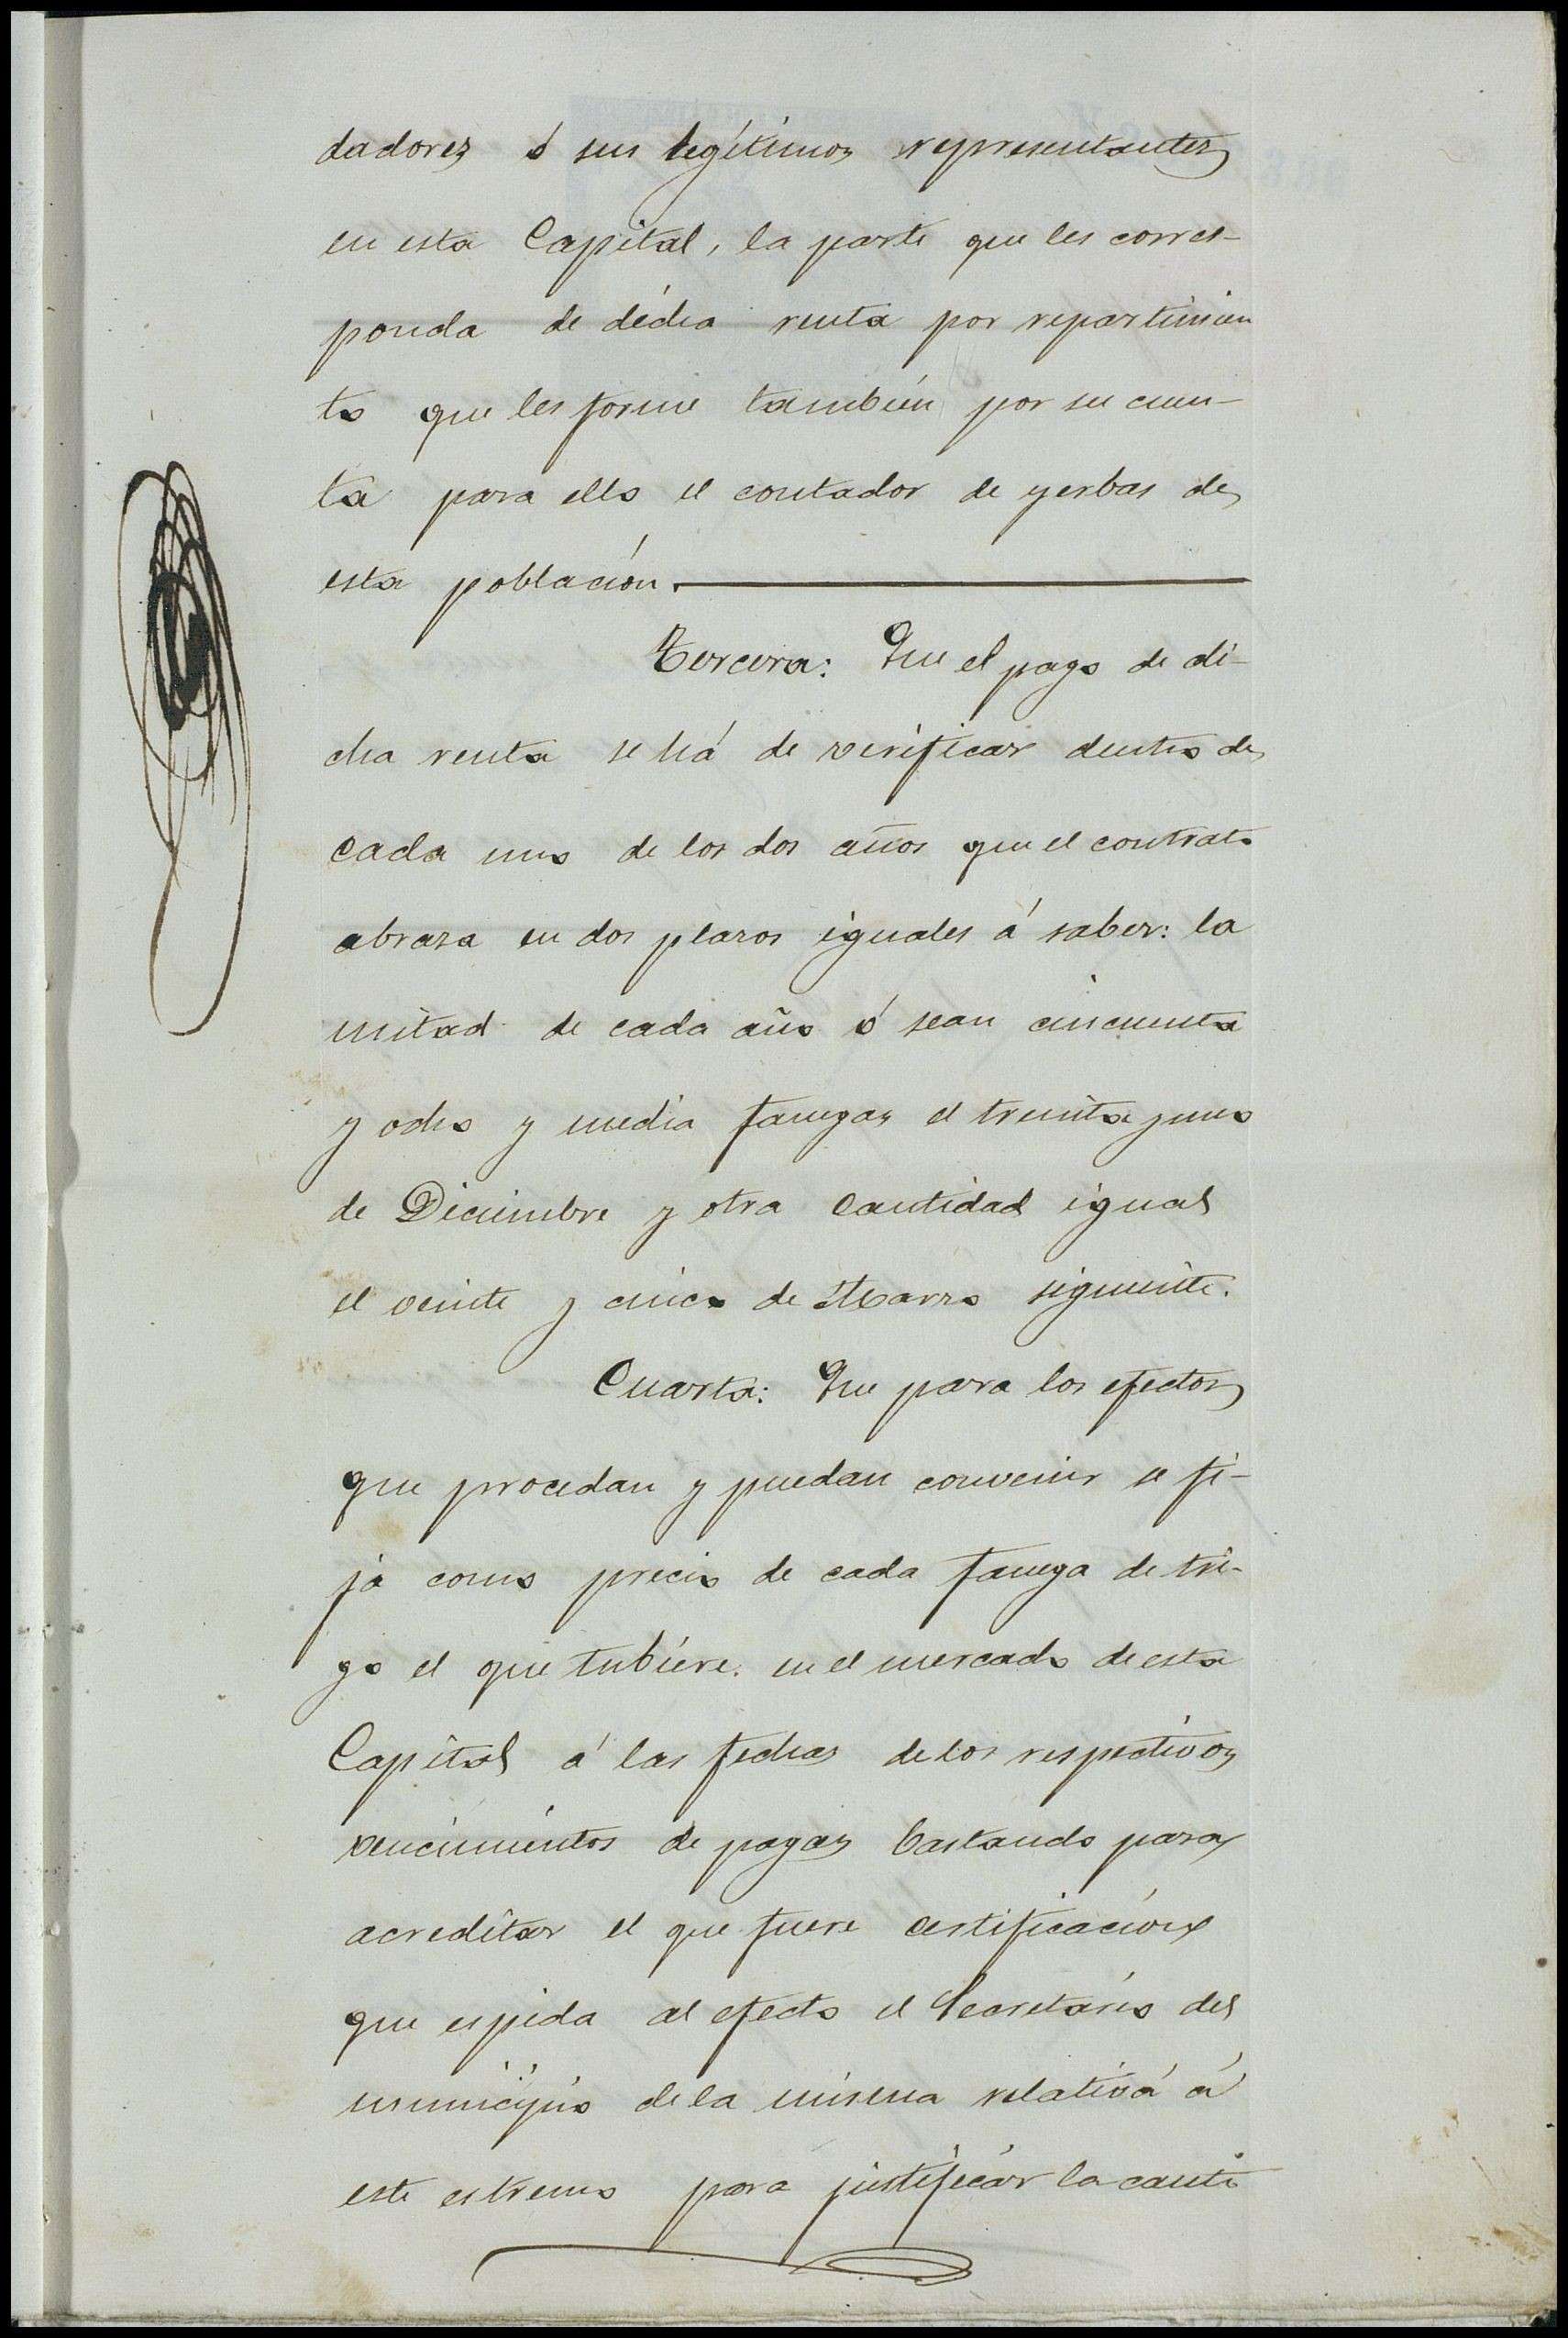 dadores ó sus legítimos representantes
en esta Capital, la parte que les corres-
ponda de dicha renta por repartimien
to que les forme también por su cuen-
ta para ello el contador de yerbas de
esta población.
Tercera: Que el pago de di-
cha renta se há de verificar dentro de
cada uno de los dos años que el contrato
abraza en dos plazos iguales á saber: la
mitad de cada año ó sean cincuenta
y ocho y media fanegas el treinta y uno
de Diciembre y otra cantidad igual
el veinte y cinco de Marzo siguiente.
Cuarta: Que para los efectos
que procedan y puedan convenir se fi-
ja como precio de cada fanega de tri-
go el que tubiere en el mercado de esta
Capital á las fechas de los respectivos
vencimientos de pagas bastando para
acreditar el que fuere certificación
que espida al efecto el Secretario del
municipio de la misma relativa á
este estremo para justificar la canti